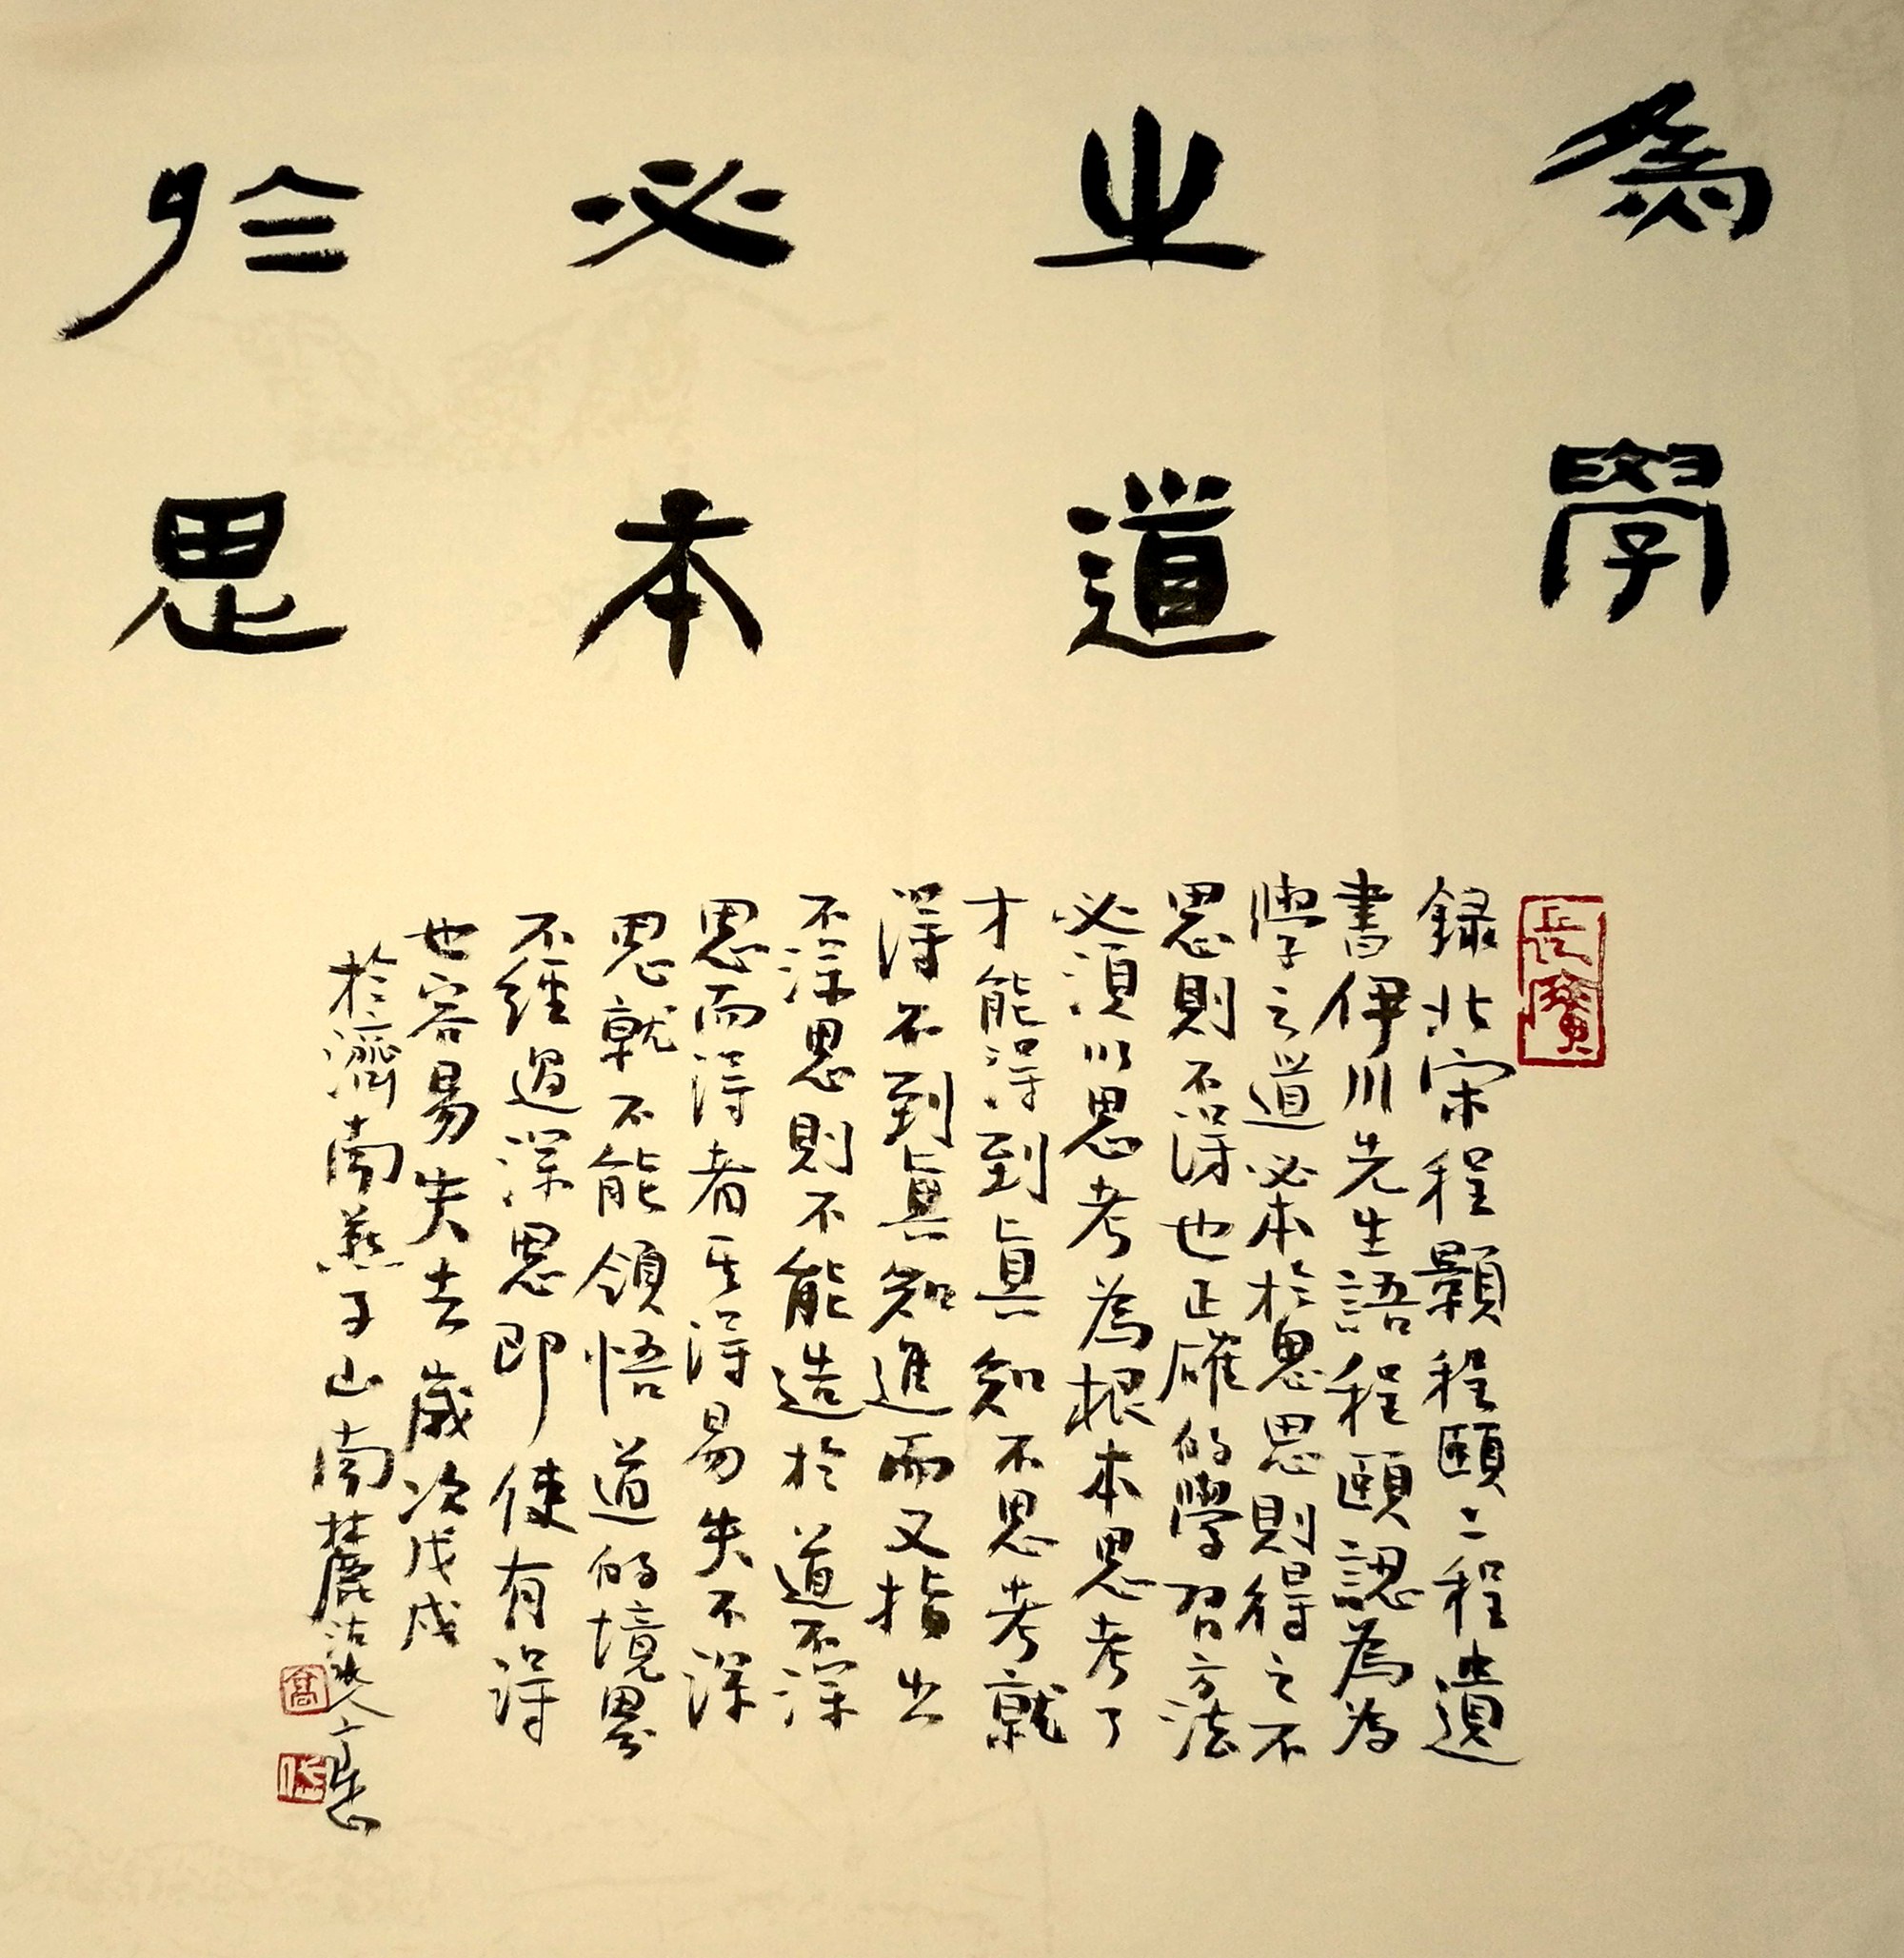 為學
之道
必本
於思
録北宋程顥程頤二程遺
書伊川先生語程頤認為為
學之道必本於思思則得之不
思則不得也正確的學習方法
必須以思考為根本思考了
才能得到真知不思考就
得不到真知進而又指出
不深思則不能造於道不深
思而得者其得易失不深
思就不能領悟道的境界
不經過深思即使有得
也容易失去歲次戊戌
於濟南燕子山南麓